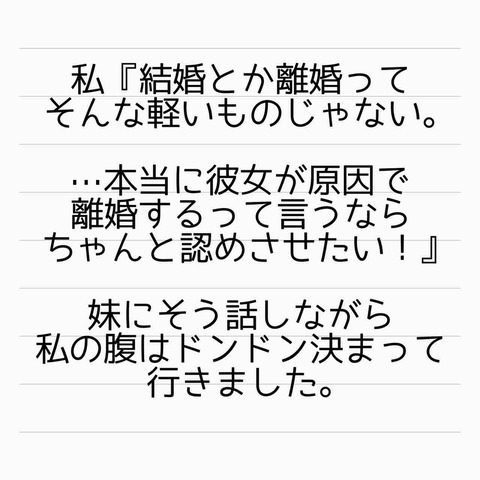 私『結婚とか離婚って
そんな軽いものじゃない。
…本当に彼女が原因で
離婚するって言うなら
ちゃんと認めさせたい！』
妹にそう話しながら
私の腹はドンドン決まって
行きました。